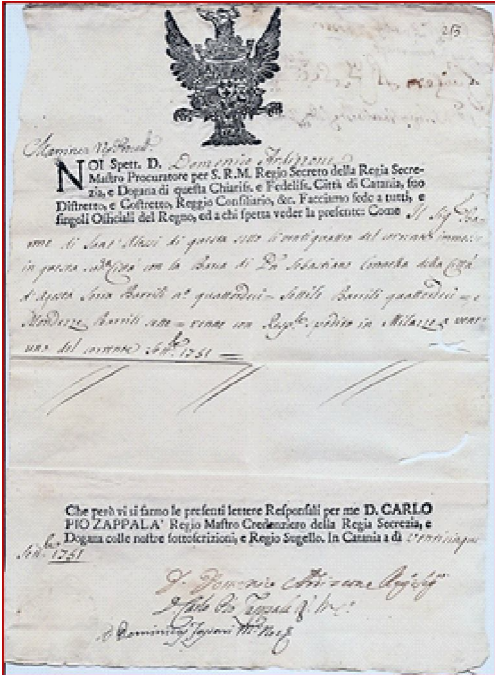 253
NOI Spett. D. Domenico Ardizzone
Mastro Procuratore per S. R. M. Regio Secreto della Regia Secre-
zia, e Dogana di questa Chiariss. e Fedeliss. Città di Catania, suo
Distretto, e Costretto, Reggio Consiliario, &c. Facciamo fede a tutti, e
singoli Officiali del Regno, ed a chi spetta veder la presente: Come Il Sigr. Ba-
rone di Sant' Alessi di questa sotto li ventiquattro del corrente immese
in questa Città con la Barca di Pne Sebastiano della Città
d'Agosta Barrili quattordeci Barrili quattordeci = e
Barrili sette = venne con pedito in Milazzo a vent'
uno del corrente Sette. 1751
Che però vi si fanno le presenti lettere Responsali per me D. CARLO
PIO ZAPPALA' Regio Mastro Credenziero della Regia Secrezia, e
Dogana colle nostre sottoscrizioni, e Regio Sugello. In Catania a dì venticinque
Sette. 1751
D. Domenico Ardizzone
D. Carlo Pio Zappalà